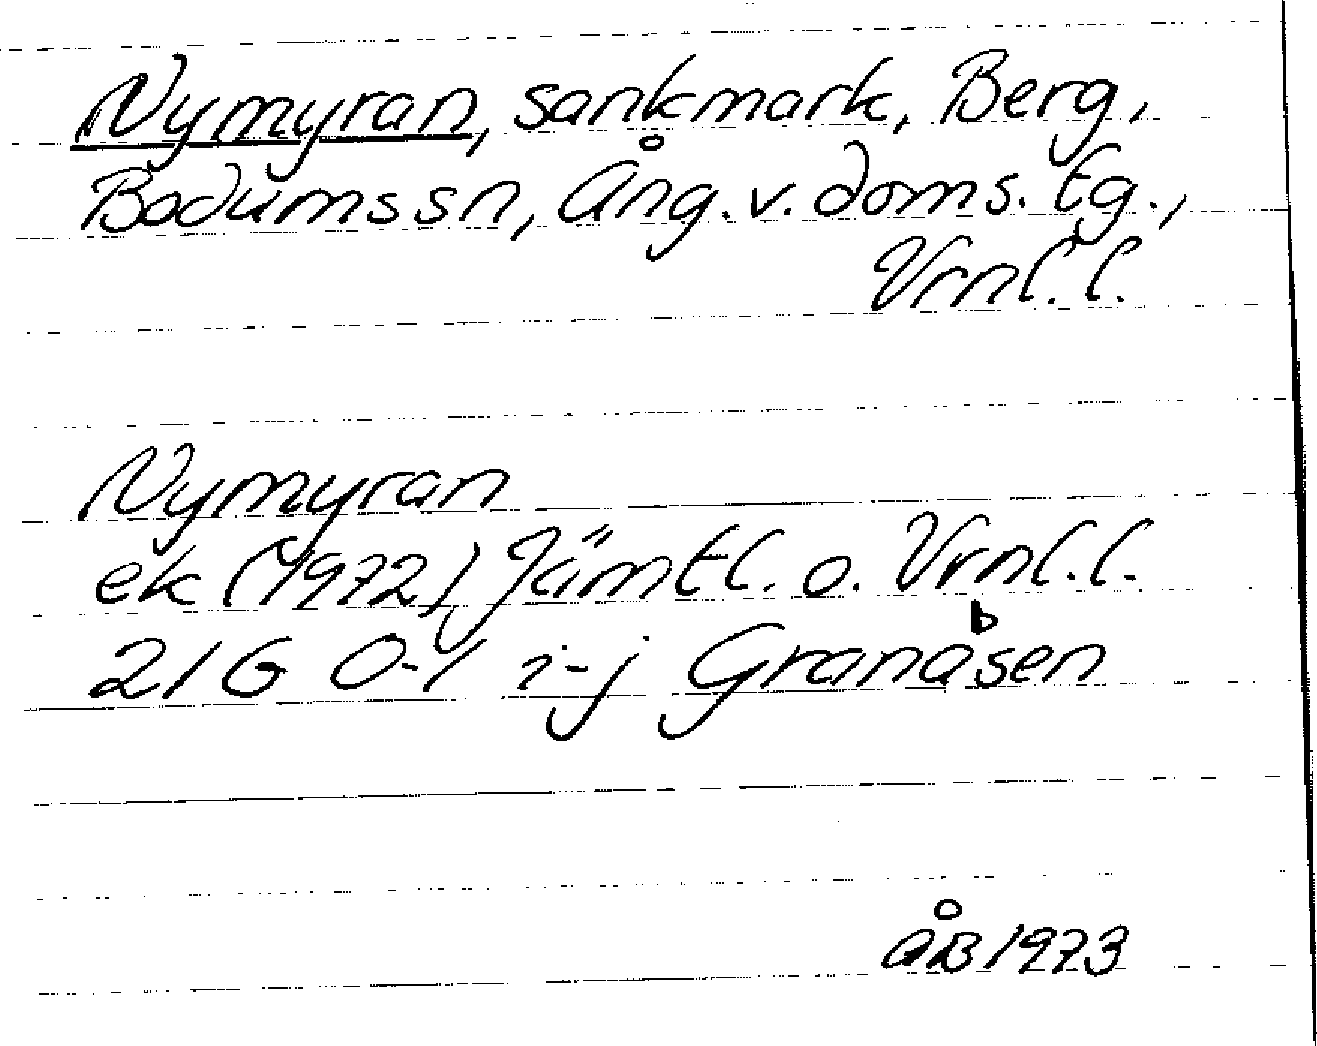 Nymyran, sankmark, Berg,
Bodums sn, Ång. v. doms. tg.,
Vrnl. l.
Nymyran
ek (1972) Jämtl. o. Vrnl. l.
21G 0-1 i-j Granåsen
ÅB 1973